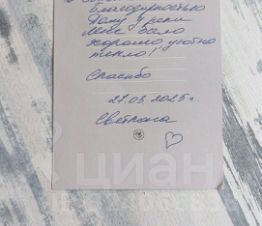 благодарностью
Дому у реки
Мне было
хорошо, уютно
тепло!
Спасибо
27.03.2025 г.
Светлана
циан